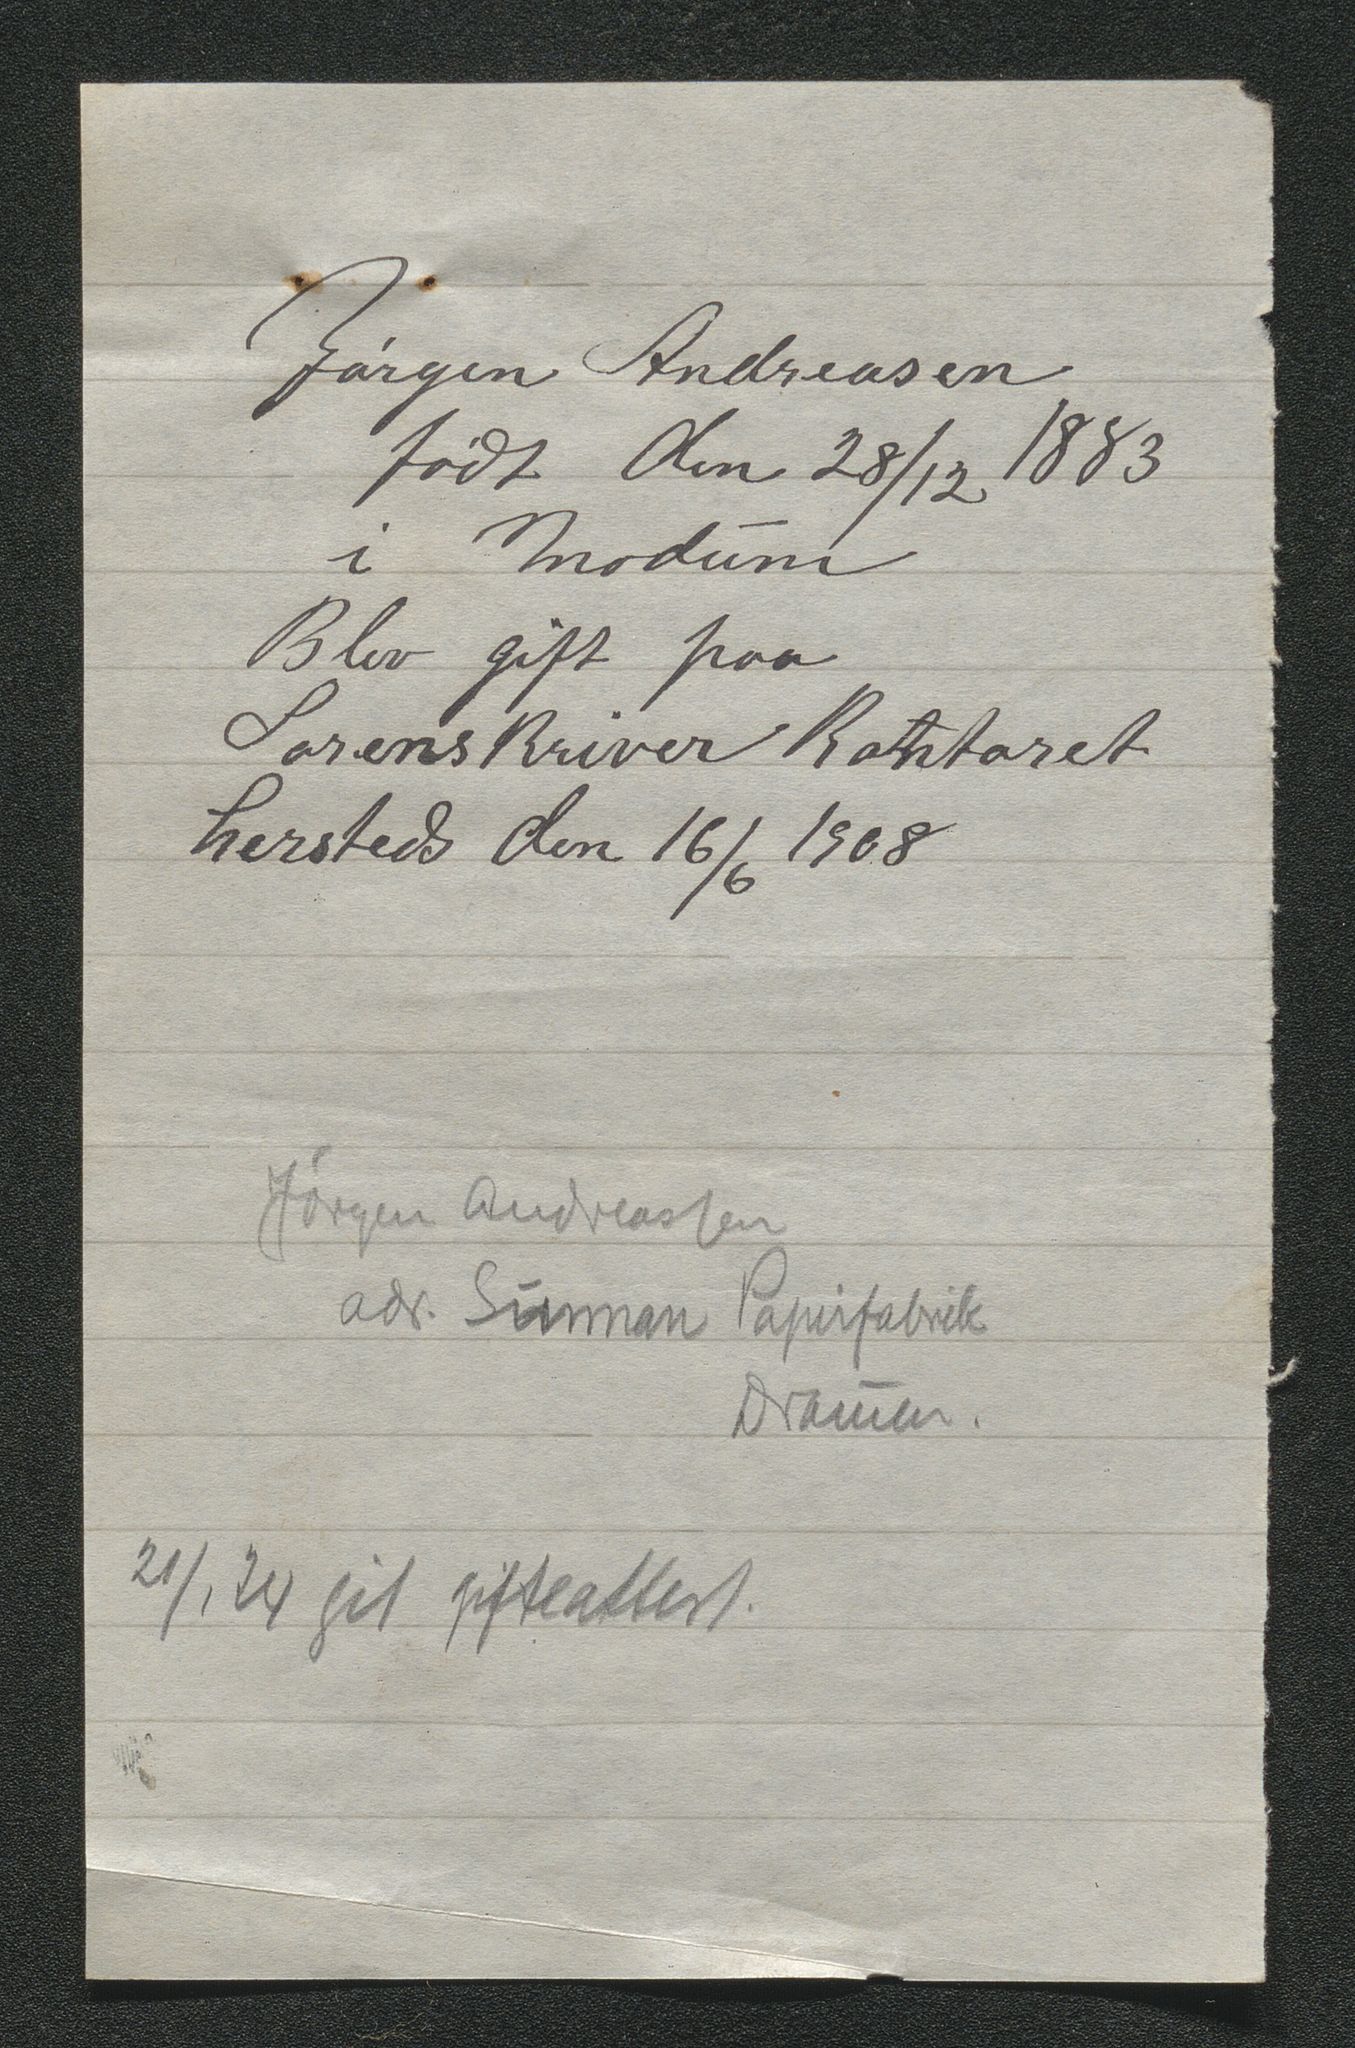 Jórgen Andreasen
födt den 28/12 1883
i Modum
Blev gift paa
Sorenskriver Kontoret
hersteds den 16/6 1908
Jörgen Andreassen
adr. Sunman Papirfabrik
Dramen.
21/1 24 git gifteattest.